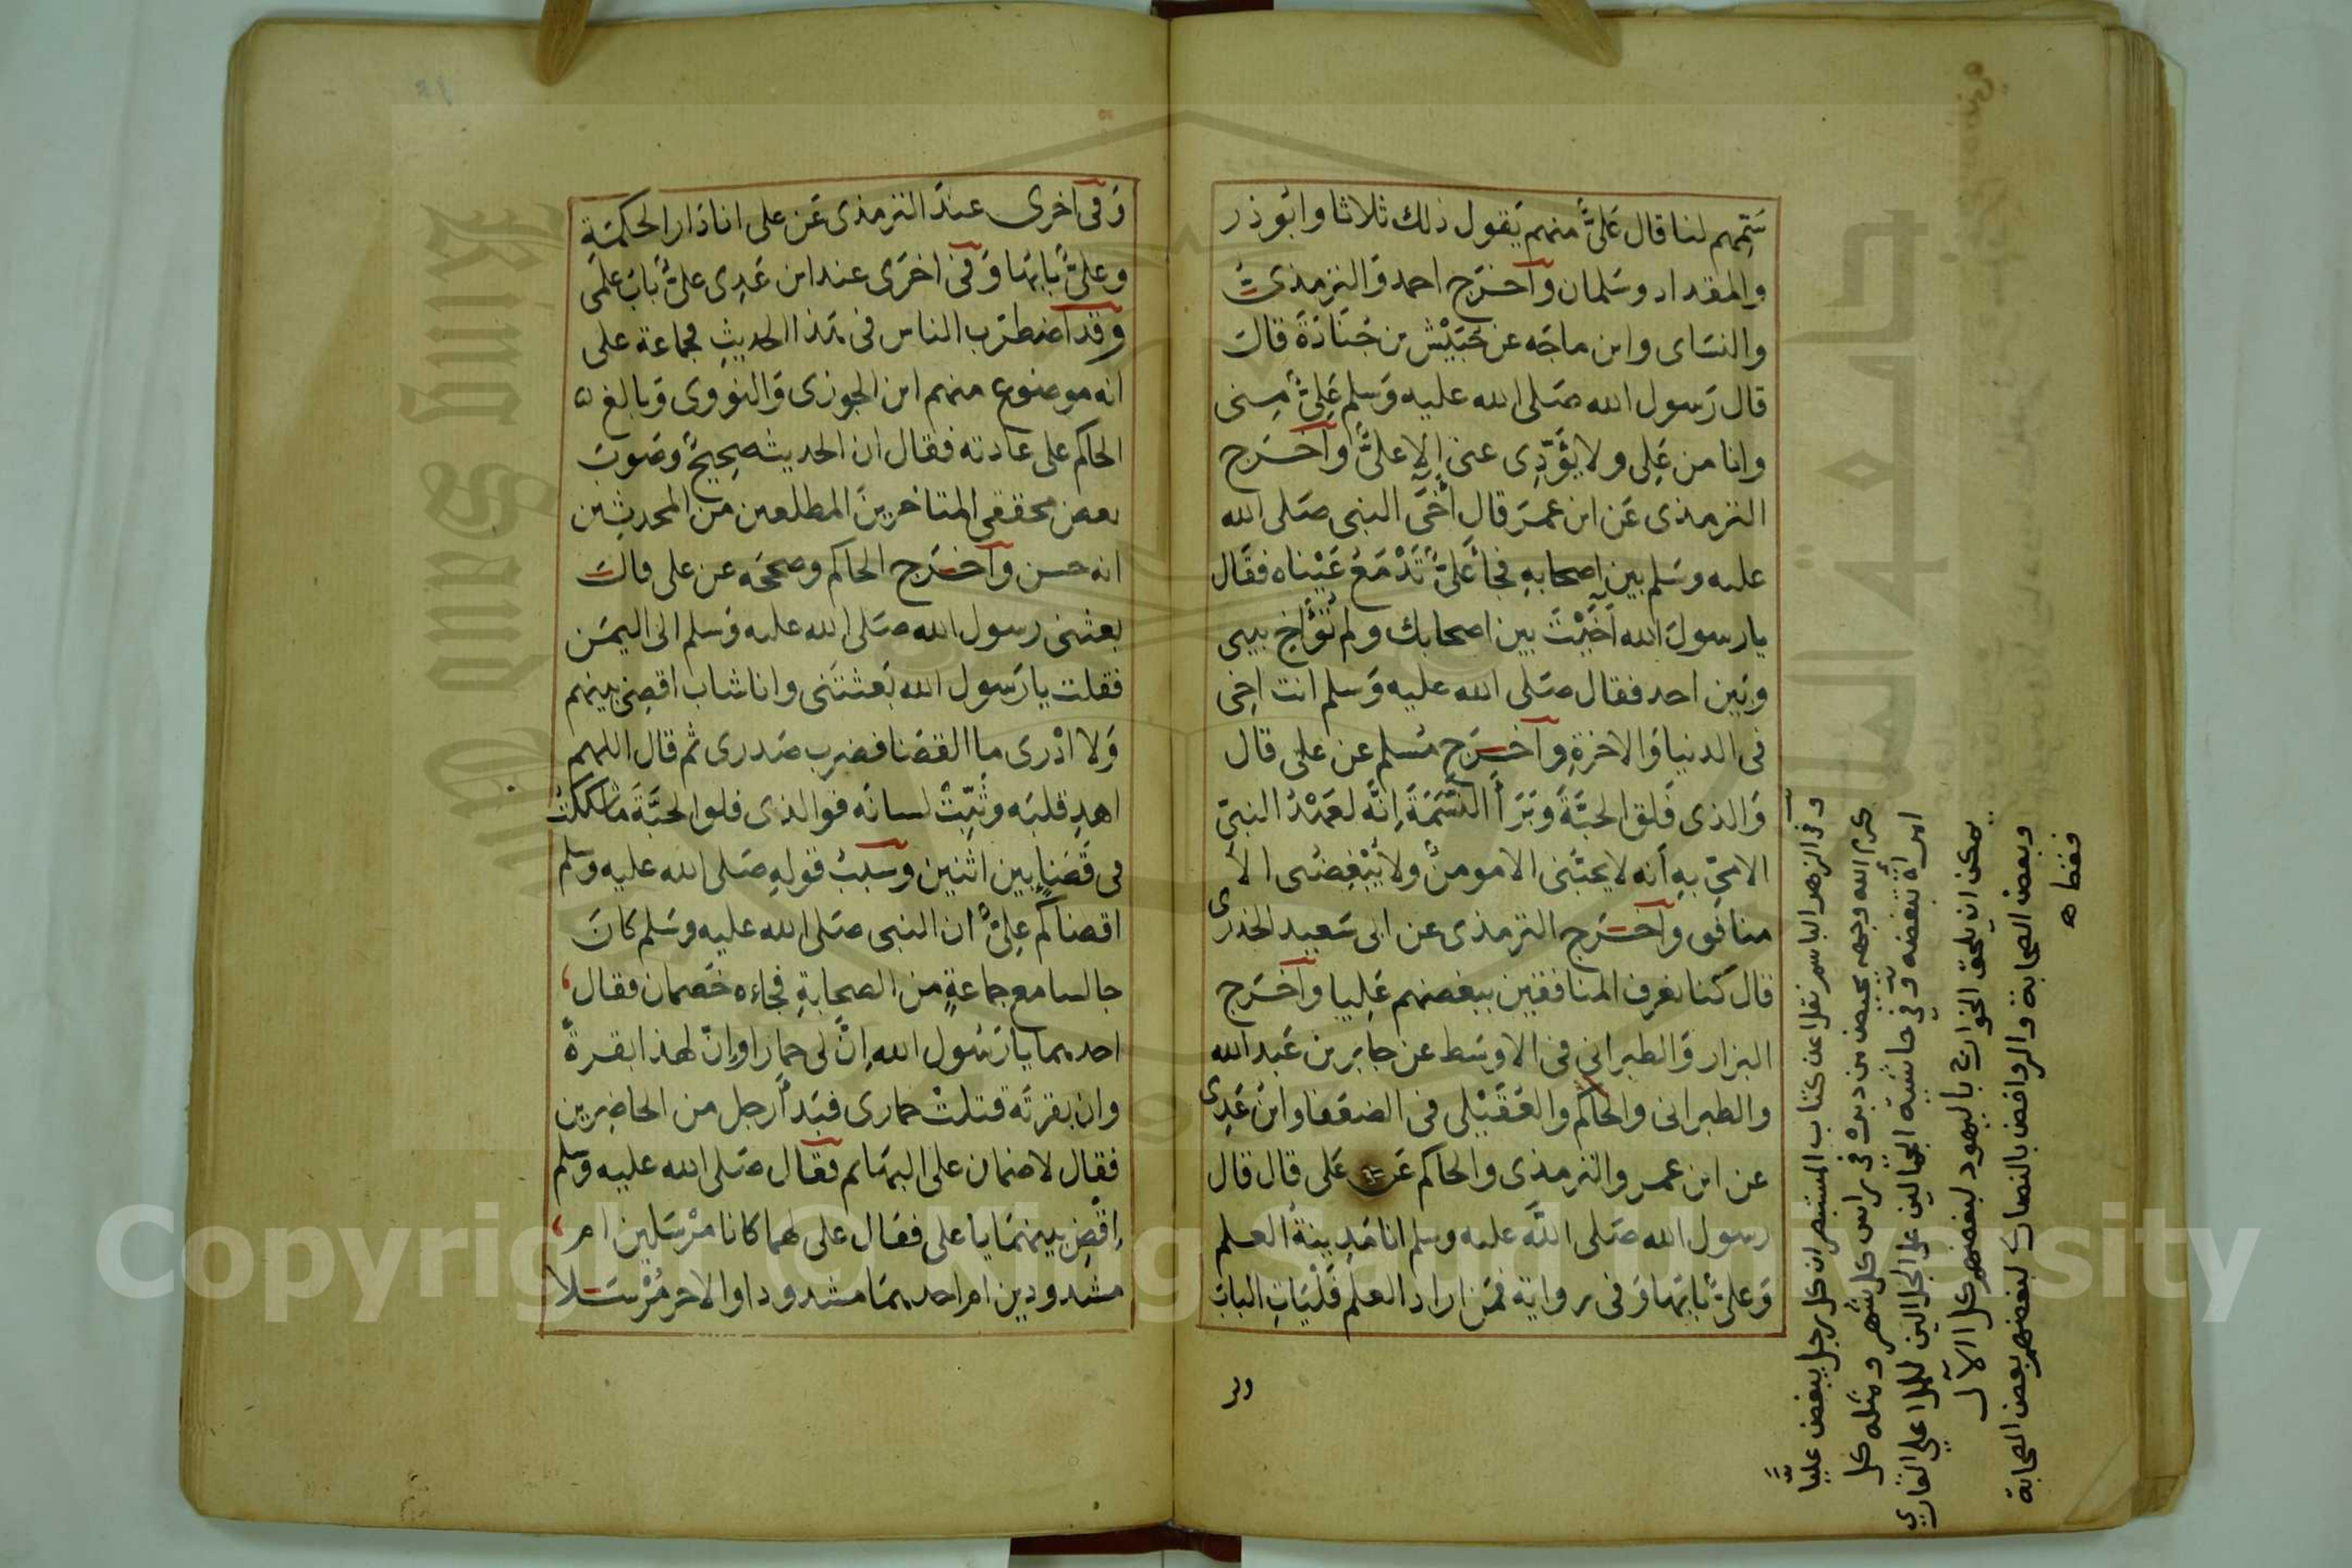 سَمِّهم لنا قال عَلىٌّ منهم يَقول ذلك ثلاثا وابُوذر
والمقداد وسَلمان وآخرَج احمد وَالترمذىُّ
والنسَاى وابن ماجَه عن حُبَيْش بن جُنَادَةَ قالَ
قال رَسول الله صَلى الله عليه وَسلم عَلِىٌّ مِنى
وانا من عَلِى ولا يُؤَدِّى عنى إلا علىٌّ وآخرَج
الترمذى عَن ابن عمرَ قال آخَى النبى صَلى الله
عليه وسَلم بين اصحابهِ فجأ عَلىٌّ تَدْمَعُ عَيْنَاه فقَال
يا رسولَ الله آخَيْتَ بين اصحابك ولم تُؤَاخِ بينى
وبَين احد فقال صَلى الله عليه وَسلم انت اخى
فى الدنيا وَالاخرةِ وآخرَج مُسلم عن على قال
وَالذى فَلق الحبَّةَ وَبَرَأَ النَّسَمَةَ اِنَّه لعَهْدُ النبىّ
الامىّ بهِ اَنه لا يحبُّنى الا مومنٌ ولا يُبْغِضُنى الا
منافق وآخرَج الترمذى عن ابى سَعِيد الخدرى
قال كنا نعرف المنافقين ببغضهم عَلِيا وآخرَج
البزار وَالطبرانى فى الاوسَط عن جابر بن عَبد الله
والطبرانى والحاكم والعُقَيْلى فى الضعَفا وابنُ عَدِى
عن ابن عمر والترمذى والحاكم عَن عَلى قال قال
رسول الله صَلى اللَّه عليه وسلم انا مَدِينةُ العلم
وَعلىٌّ بَابهَا وَفى رواية فمَن اراد العلم فَلْيَاتِ البَابَ
وفى
وفى الزهر الباسم نقلا عن كتاب المستبصر ان كل رجل يبغض عليّا
كرم الله وجهه يحيض من دبره فى راس كل شهر ومثله كل
امرأة تبغضه وفى حاشية الجمالين على الجلالين للملا على القارى
يمكن ان يلحق الخوارج باليهود لبغضهم كل الآل
وبعض الصحابة والروافض بالنصارى لبغضهم بعض الصحابة
فقط ه
وَفى آخرى عندَ الترمذى عَن على انا دَار الحكمَة
وعلىٌّ بَابهَا وَفى اخرَى عند ابن عَدِى علىٌّ بَابُ علمى
وقد آضطرَب الناس فى هذا الحديثِ فجماعة على
انه موضوع منهم ابن الجوزى وَالنووى وَبالغ
الحاكم على عَادته فقال ان الحديث صحيحٌ وَصَوبَ
بعض محققى المتاخرينَ المطلعين من المحدثِين
انه حسن وآخرَج الحاكم وصححَه عن على قالَ
بعثنى رسول الله صَلى الله عليه وَسلم الى اليمَن
فقلت يا رَسول الله بَعثتَنى وانا شاب اقضِى بينهم
وَلا ادْرى ما القضَا فضرب صَدرى ثم قال اللهم
اهدِ قلبَه وثَبِّتْ لسانَه فوَالذى فلق الحَبَّةَ مَا شككتُ
فى قَضَاٍ بين اثنين وسَببُ قولهِ صَلى الله عليه وسلم
اقضاكم عِلىٌّ ان النبى صَلى الله عليه وسَلم كانَ
جالسا مع جماعةٍ من الصحابةِ فجاءه خَصمان فقال
احدهما يا رَسُول الله اِنَّ لى حمارا واِنّ لهذا بقرةً
وان بقرتَه قتلتْ حمارى فبَدأَ رجل من الحاضِرين
فقال لا ضمان على البهَايم فقَال صَلى الله عليه وَسلم
اِقْضِ بينهمَا يا على فقَال على لهما كانا مُرْسَلين ام
مشدودين ام احدهمَا مشدودا والاخر مُرْسَلا